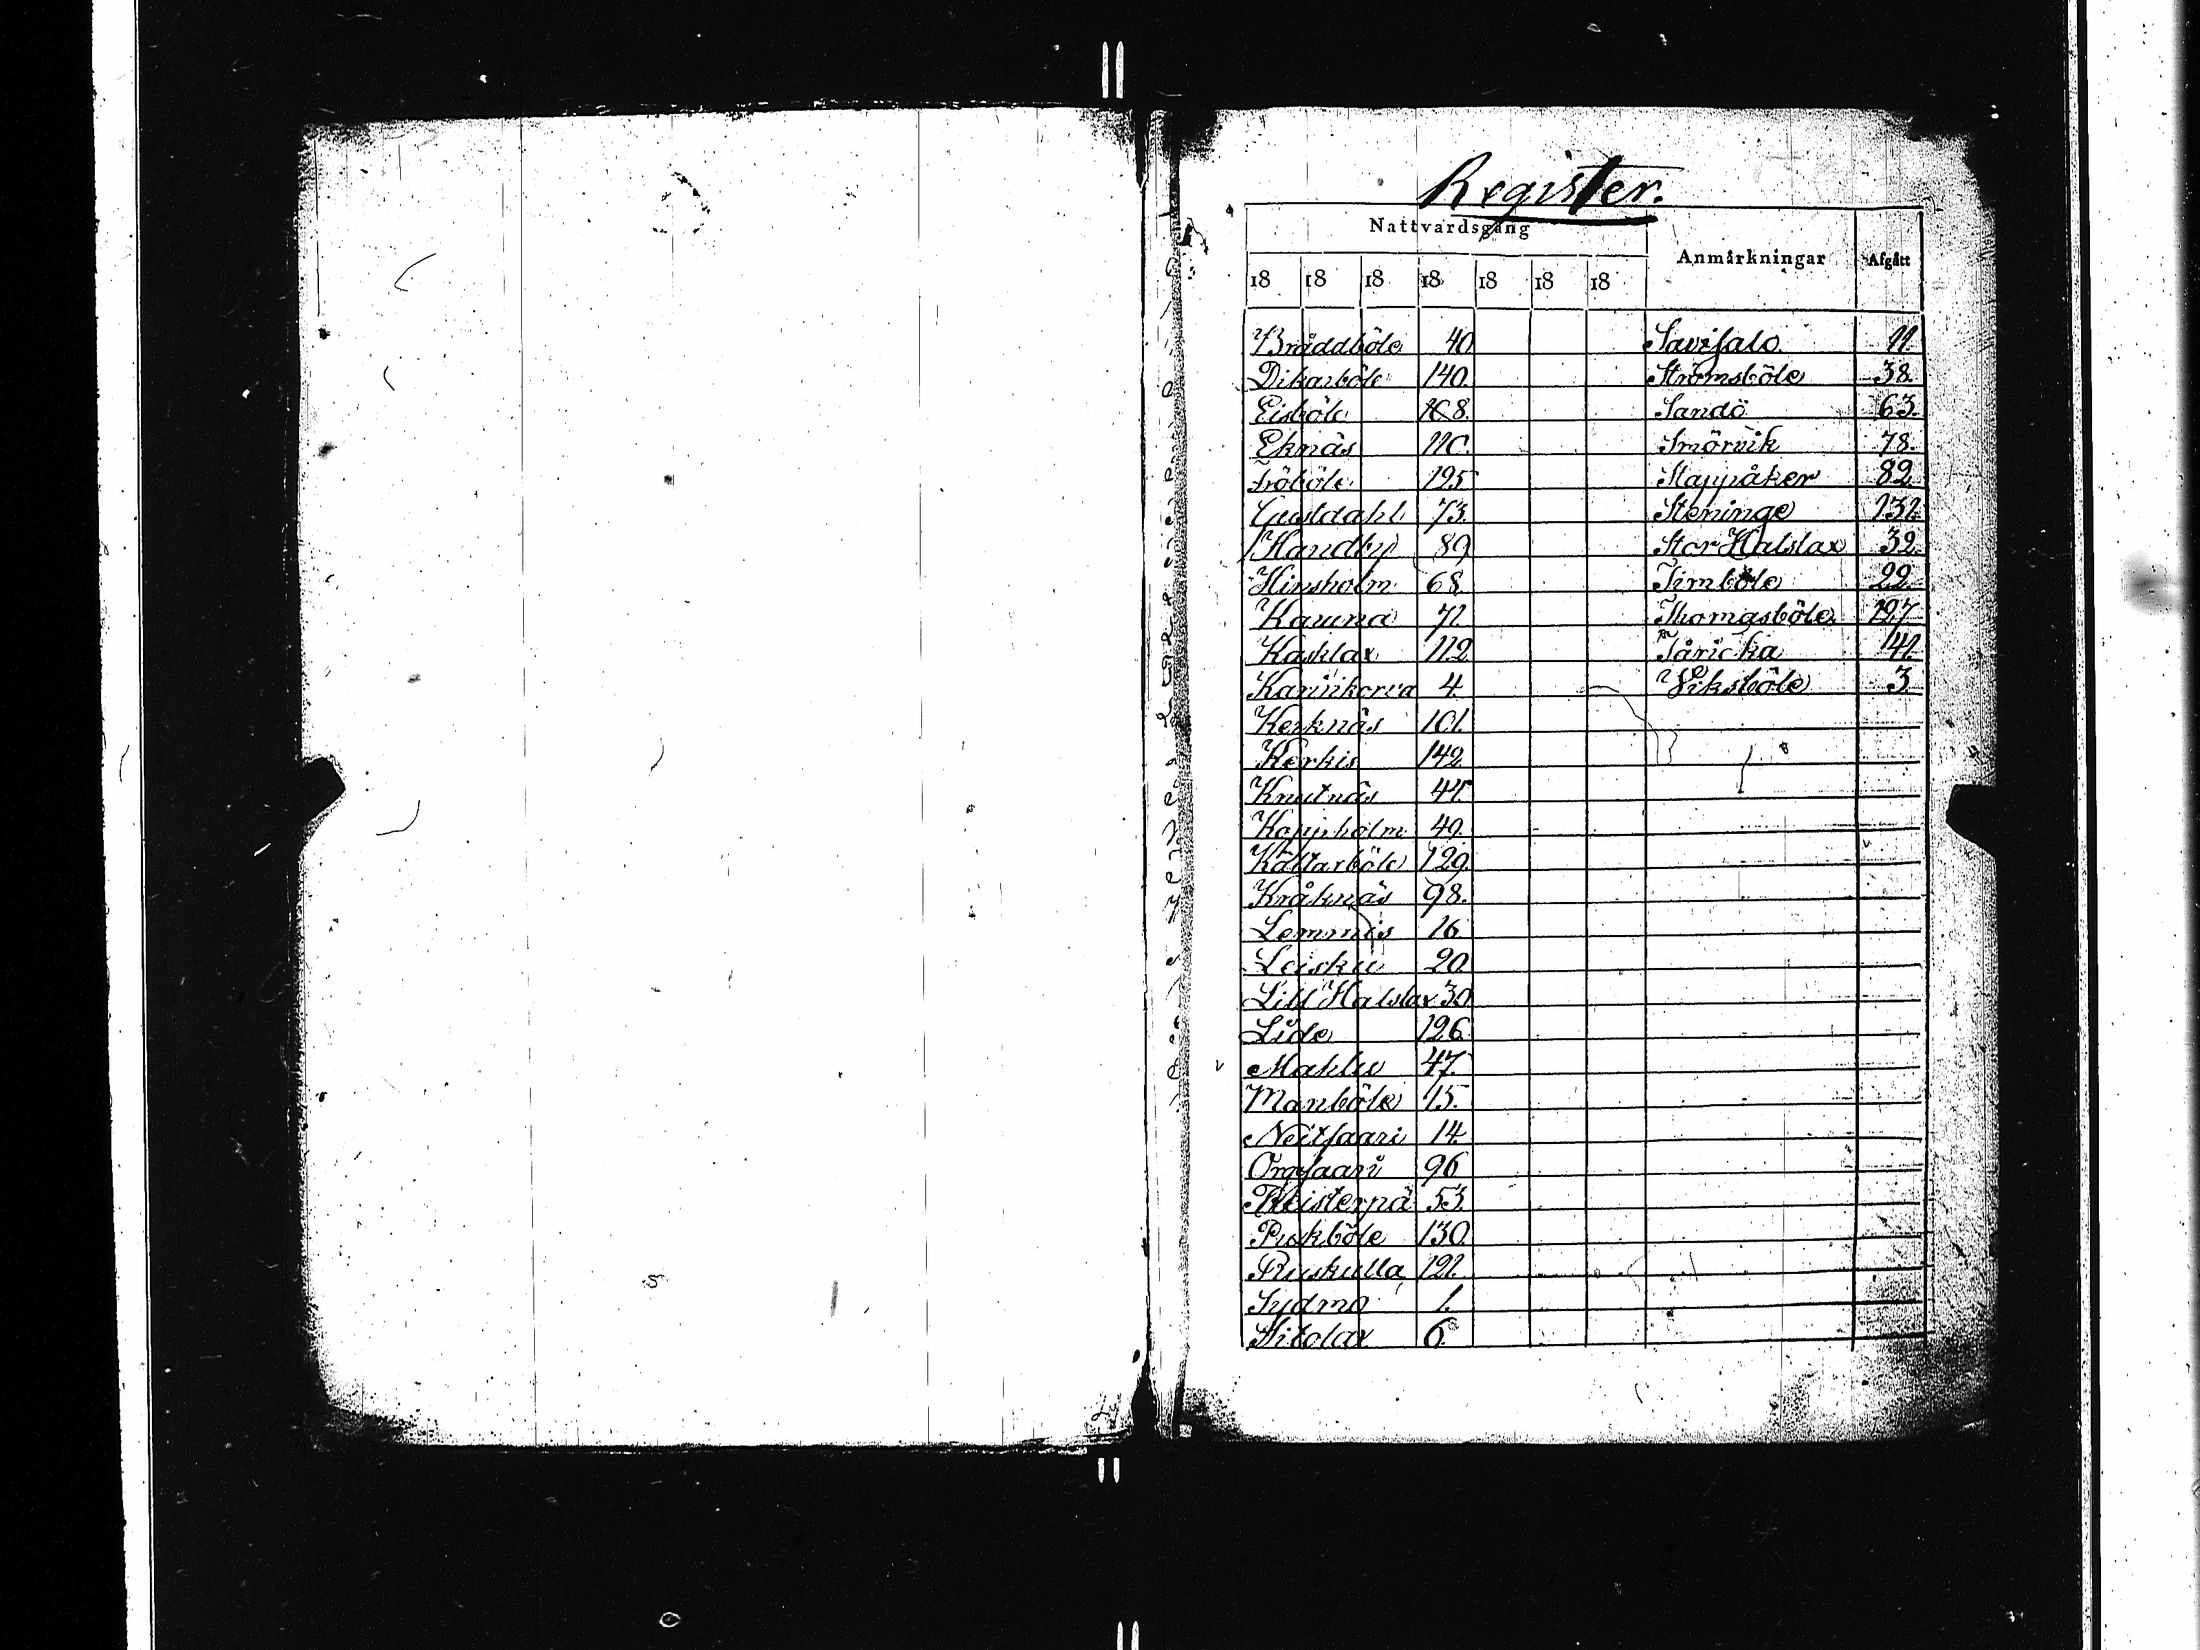 Register.
Nattvardsgång Anmärkningar Afgått
18 18 18 18 18 18 18
Bråddböle 40 Savisalo 11.
Dikarböle 140. Strömsböle 38.
Eisböle 108. Sandö 63.
Eknäs 110. Smörvik 78.
Fröböle 125 Stappåker 82.
Gestdahl 73. Steninge 132
Handby 89 Stor Halslax 32.
Hinsholm 68. Timböle 22.
Kaurna 71. Thomasböle 127
Kasklax 112 Tåricka 141.
Karinkorva 4. Viksböle 3.
Kerknäs 101.
Kerkis 142
Knutnäs 44.
Koppholm 49.
Källarböle 129.
Kråknäs 98.
Lemmis 16
Loisku 20
Lill Halslax 30
Lide 126.
Mahlu 47.
Manböle 15.
Neitsaari 14.
Orgsaari 96
Pleisterpä 53.
Pukböle 130
Ruskulla 121.
Sydmo 1.
Sitolax 6.